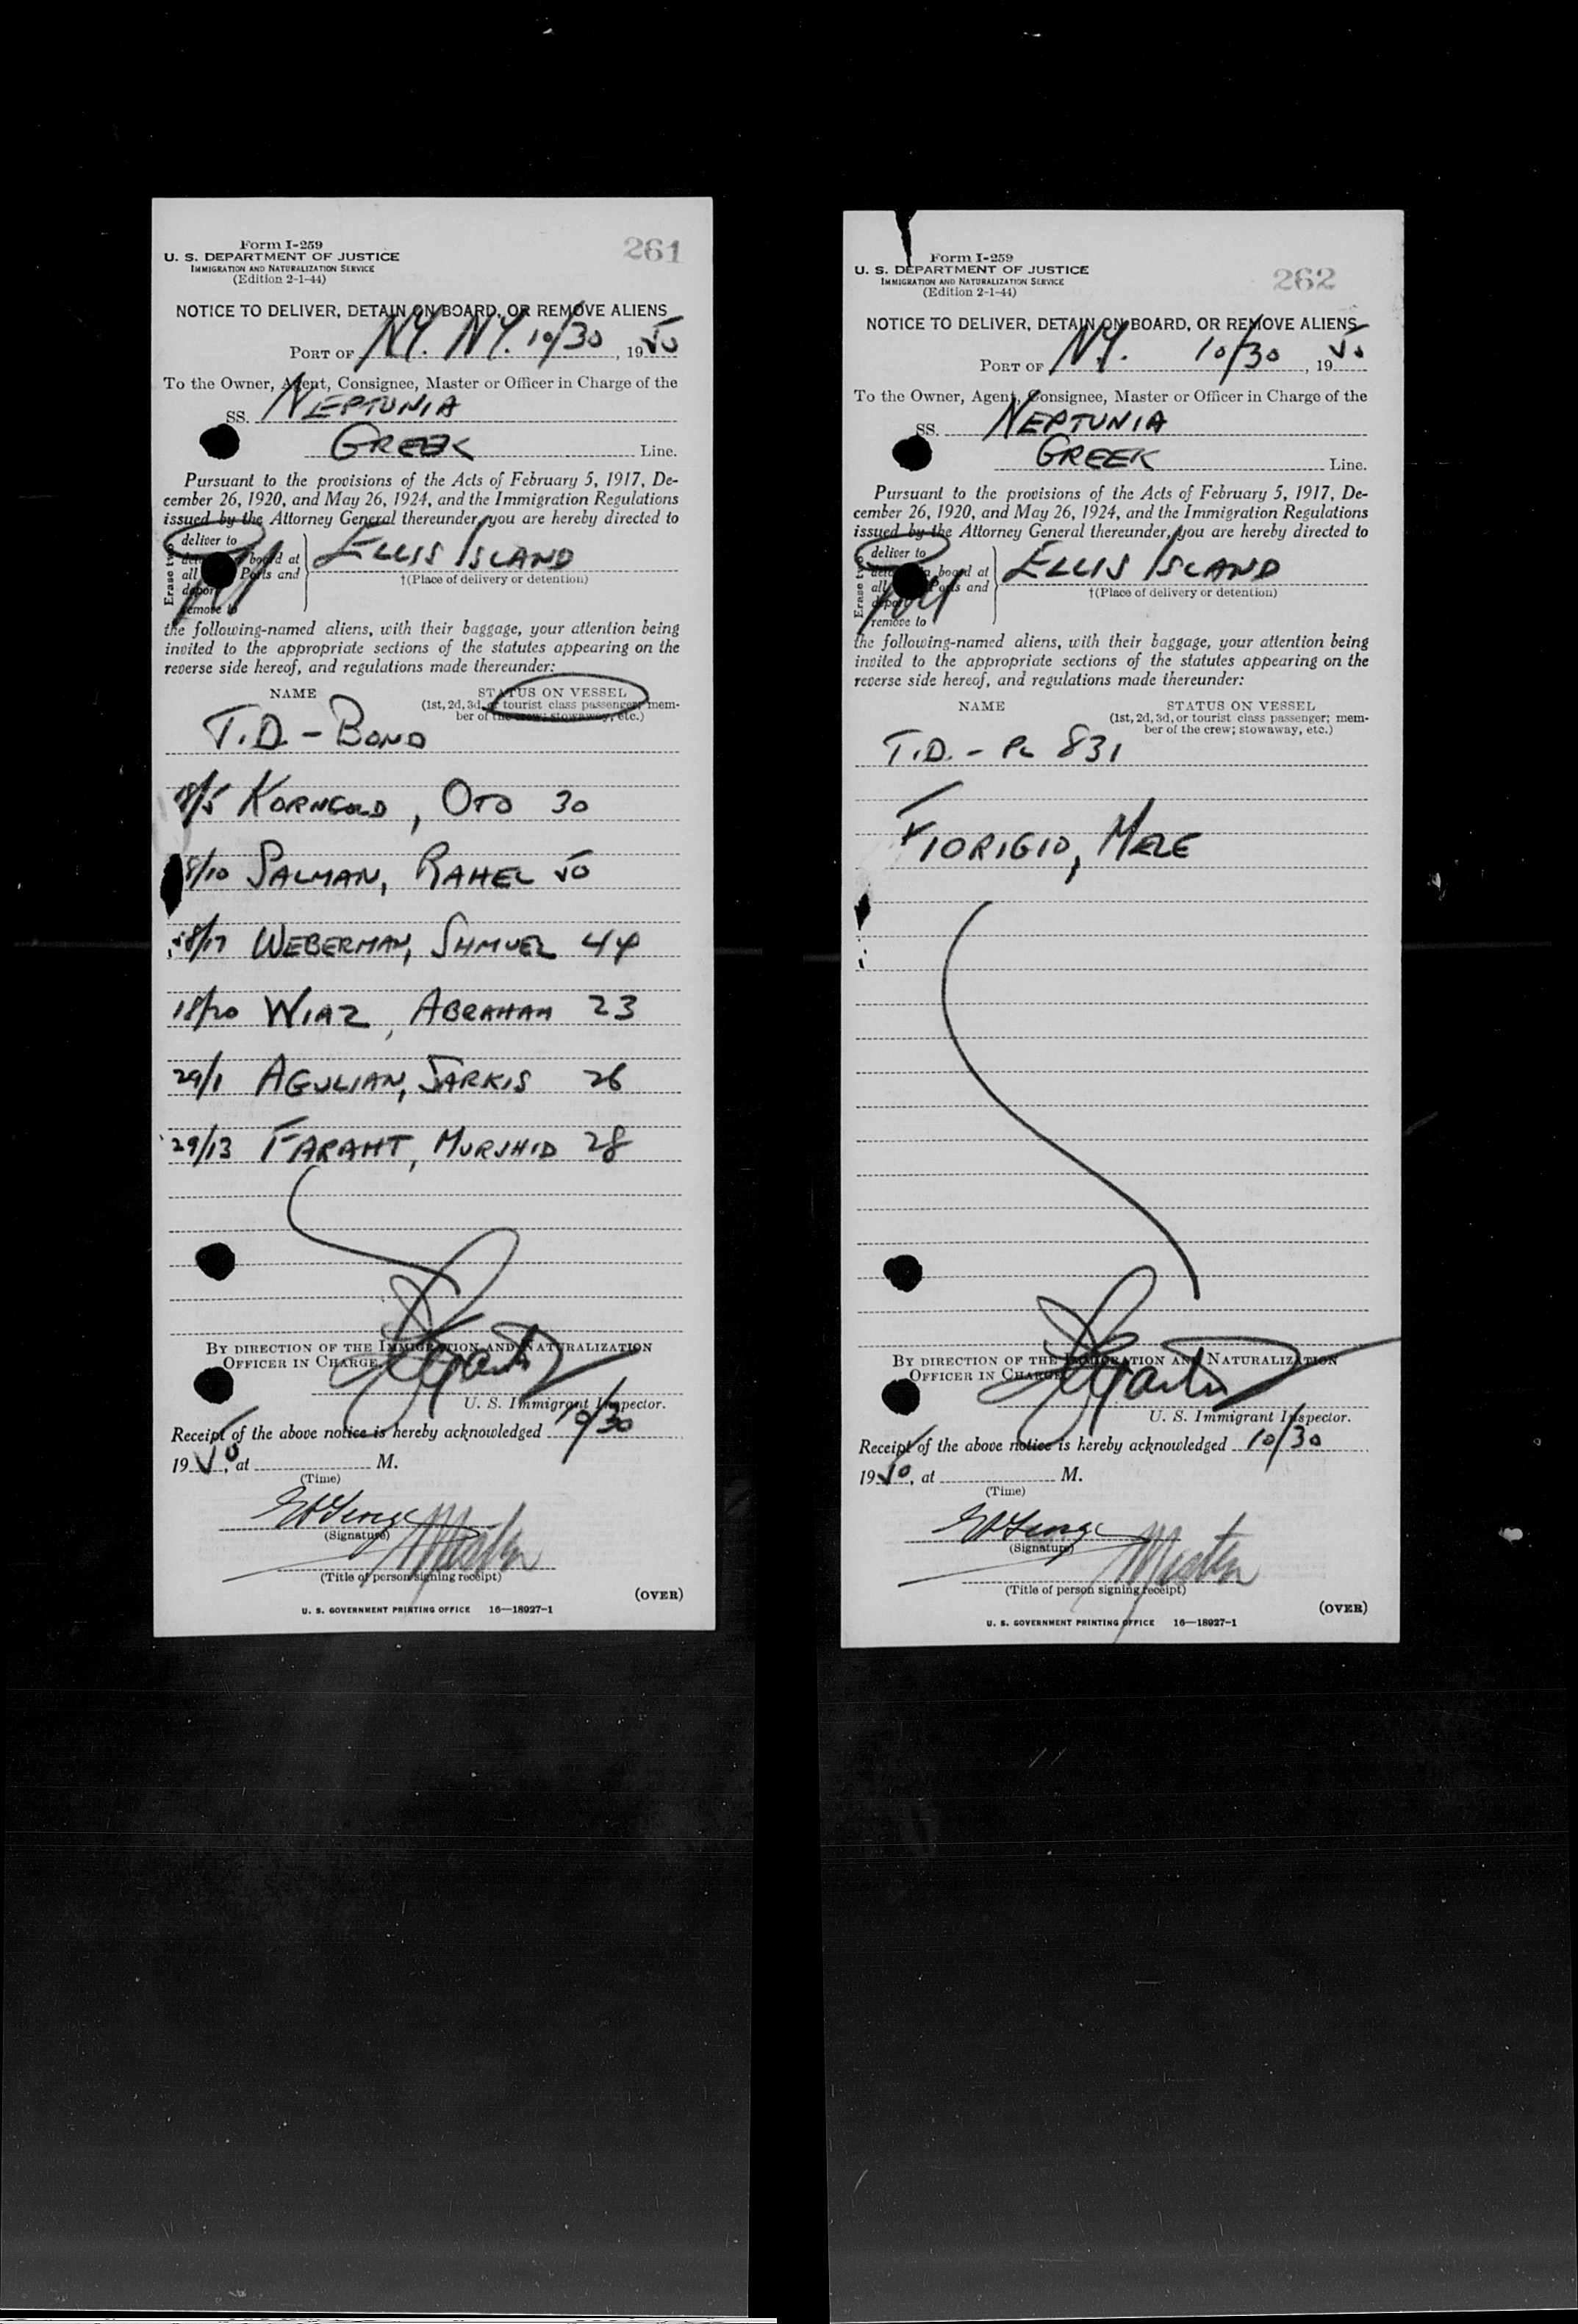 Form I-259
U. S. DEPARTMENT OF JUSTICE
IMMIGRATION AND NATURALIZATION SERVICE
(Edition 2-1-44)
261
NOTICE TO DELIVER, DETAIN ON BOARD, OR REMOVE ALIENS
PORT OF N.Y. N.Y. 10/30, 1950
To the Owner, Agent, Consignee, Master or Officer in Charge of the
SS. NEPTUNIA
GREEK Line.
Pursuant to the provisions of the Acts of February 5, 1917, De-
cember 26, 1920, and May 26, 1924, and the Immigration Regulations
issued by the Attorney General thereunder, you are hereby directed to
Erase
deliver to
board at
all Ports and
deport
remove to
ELLIS ISLAND
†(Place of delivery or detention)
the following-named aliens, with their baggage, your attention being
invited to the appropriate sections of the statutes appearing on the
reverse side hereof, and regulations made thereunder:
NAME STATUS ON VESSEL
(1st, 2d, 3d, or tourist class passenger; mem-
ber of the crew; stowaway, etc.)
T.D. - BOND
18/5 KORNGOLD, OTO 30
18/10 SALMAN, RAHEL 50
18/17 WEBERMAN, SHMUEL 44
18/20 WIAZ, ABRAHAM 23
29/1 AGULIAN, SARKIS 26
29/13 FARAHT, MURSHID 28
BY DIRECTION OF THE IMMIGRATION AND NATURALIZATION
OFFICER IN CHARGE
U. S. Immigrant Inspector.
Receipt of the above notice is hereby acknowledged 10/30
1950, at M.
(Time)
(Signature)
(Title of person signing receipt)
(OVER)
U. S. GOVERNMENT PRINTING OFFICE 16—18927-1
Form I-259
U. S. DEPARTMENT OF JUSTICE
IMMIGRATION AND NATURALIZATION SERVICE
(Edition 2-1-44)
262
NOTICE TO DELIVER, DETAIN ON BOARD, OR REMOVE ALIENS
PORT OF N.Y. 10/30, 1950
To the Owner, Agent, Consignee, Master or Officer in Charge of the
SS. NEPTUNIA
GREEK Line.
Pursuant to the provisions of the Acts of February 5, 1917, De-
cember 26, 1920, and May 26, 1924, and the Immigration Regulations
issued by the Attorney General thereunder, you are hereby directed to
Erase
deliver to
board at
all Ports and
deport
remove to
ELLIS ISLAND
†(Place of delivery or detention)
the following-named aliens, with their baggage, your attention being
invited to the appropriate sections of the statutes appearing on the
reverse side hereof, and regulations made thereunder:
NAME STATUS ON VESSEL
(1st, 2d, 3d, or tourist class passenger; mem-
ber of the crew; stowaway, etc.)
T.D. - PL 831
FIORIGIO, MELE
BY DIRECTION OF THE IMMIGRATION AND NATURALIZATION
OFFICER IN CHARGE
U. S. Immigrant Inspector.
Receipt of the above notice is hereby acknowledged 10/30
1950, at M.
(Time)
(Signature)
(Title of person signing receipt)
(OVER)
U. S. GOVERNMENT PRINTING OFFICE 16—18927-1